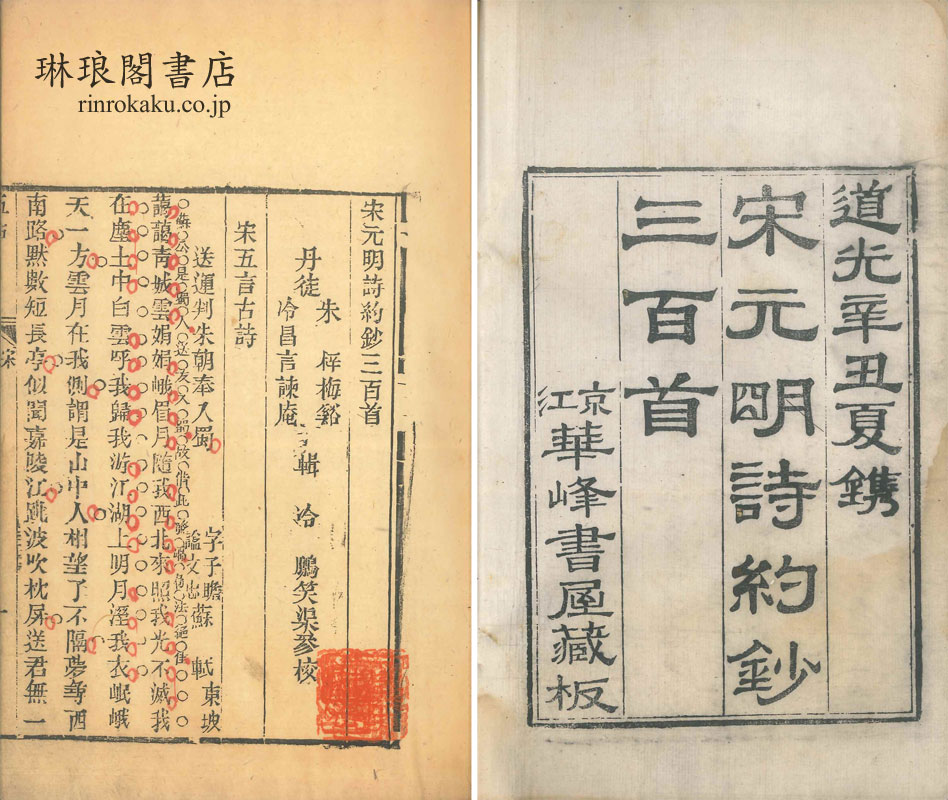 琳琅閣書店
rinrokaku.co.jp
道光辛丑夏鐫
宋元明詩約鈔
三百首
京江華峰書屋藏板
宋元明詩約鈔三百首
丹徒
朱梓梅谿
冷昌言諫庵
輯
冷鵬笑渠參校
宋五言古詩
送運判朱朝奉入蜀
蘇軾
字子瞻
東坡
諡文忠
藹藹青城雲娟娟峨眉月隨我西北來照我光不滅我
在塵土中白雲呼我歸我游江湖上明月溼我衣岷峨
天一方雲月在我側謂是山中人相望了不隔夢尋西
南路默數短長亭似聞嘉陵江跳波吹枕屏送君無一
宋
一